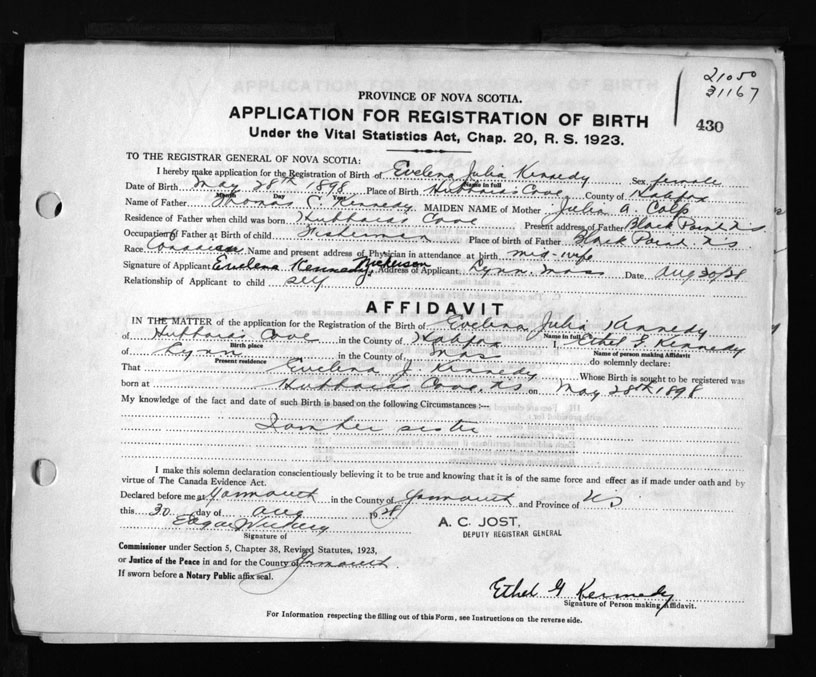 21050
31167
430
PROVINCE OF NOVA SCOTIA.
APPLICATION FOR REGISTRATION OF BIRTH
Under the Vital Statistics Act, Chap. 20, R. S. 1923.
TO THE REGISTRAR GENERAL OF NOVA SCOTIA:
I hereby make application for the Registration of Birth of Evelena Julia Kennedy Sex female
Name in full
Date of Birth May 28th 1898 Place of Birth Hubbards Cove County of Halifax
Month Day Year
Name of Father Thomas C Kennedy MAIDEN NAME of Mother Julia A. Colp
Residence of Father when child was born Hubbards Cove Present address of Father Black Point N S
Occupation of Father at Birth of child Fisherman Place of birth of Father Black Point N S
Race Canadian Name and present address of Physician in attendance at birth mid-wife
Signature of Applicant Evelena Kennedy Nickerson Address of Applicant Lynn Mass Date Aug 30/28
Relationship of Applicant to child self
AFFIDAVIT
IN THE MATTER of the application for the Registration of the Birth of Evelena Julia Kennedy
Name in full
of Hubbards Cove in the County of Halifax I Ethel G Kennedy
Birth place Name of person making Affidavit
of Lynn in the County of Mass do solemnly declare:
Present residence
That Evelena J. Kennedy Whose Birth is sought to be registered was
born at Hubbards Cove, N S on May 28th 1898
My knowledge of the fact and date of such Birth is based on the following Circumstances:—
I am her sister
I make this solemn declaration conscientiously believing it to be true and knowing that it is of the same force and effect as if made under oath and by
virtue of The Canada Evidence Act.
Declared before me at Yarmouth in the County of Yarmouth and Province of N S
this 30 day of Aug 1928
Signature of
A. C. JOST,
DEPUTY REGISTRAR GENERAL
Commissioner under Section 5, Chapter 38, Revised Statutes, 1923,
or Justice of the Peace in and for the County of Yarmouth.
If sworn before a Notary Public affix seal.
Ethel G Kennedy
Signature of Person making Affidavit.
For Information respecting the filling out of this Form, see Instructions on the reverse side.